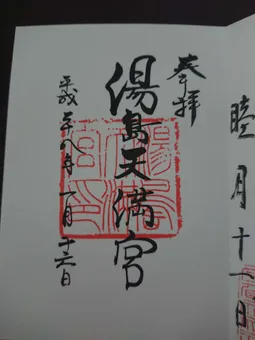 睦月十一日
奉拝
湯島天満宮
平成二十八年一月十六日